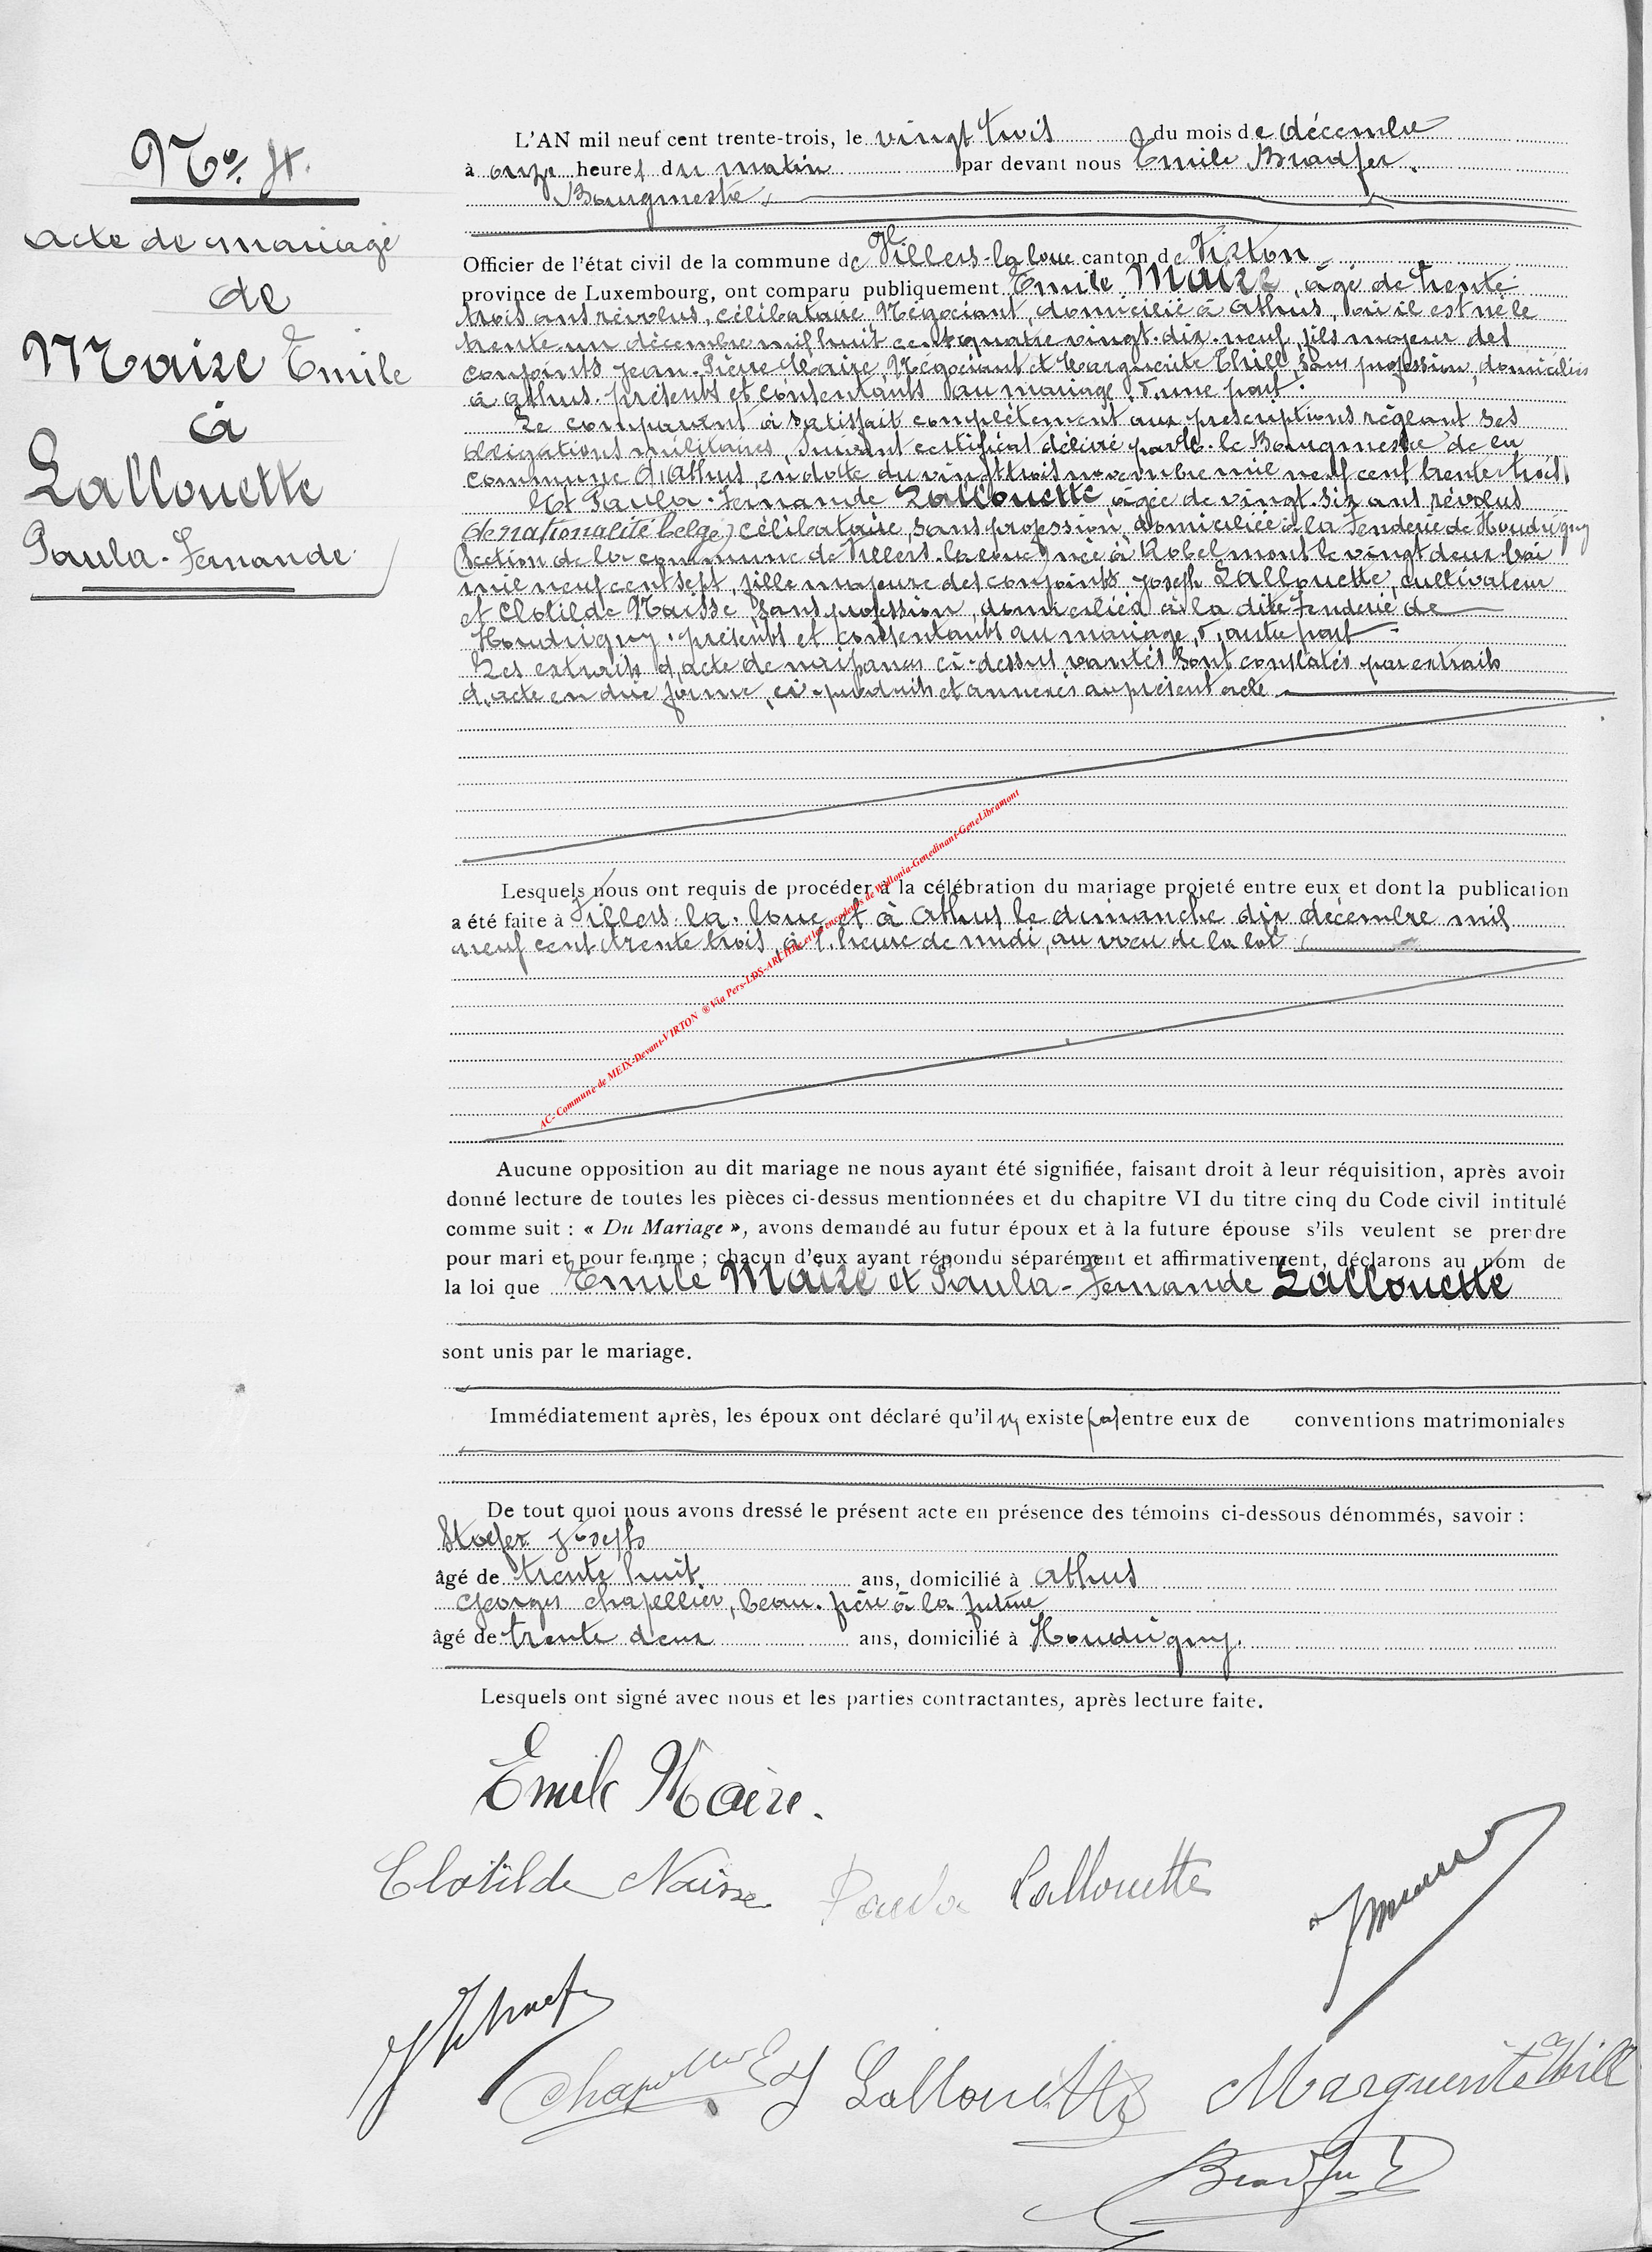 N° 4.
acte de mariage
de
Maire Emile
à
Lallouette
Paula-Fernande
L'AN mil neuf cent trente-trois, le vingt trois du mois de décembre
à onze heures du matin par devant nous Emile Bradfer.
Bourgmestre,
Officier de l'état civil de la commune de Villers-la-loue canton de Virton
province de Luxembourg, ont comparu publiquement Emile Maire, âgé de trente
trois ans révolus, célibataire Négociant, domicilié à Athus, où il est né le
trente un décembre mil huit cent quatre vingt-dix-neuf, fils majeur des
conjoints Jean-Pierre Maire, Négociant et Marguerite Thill, sans profession, domiciliés
à Athus. présents et consentants au mariage, d'une part.
Le comparant a satisfait complètement aux prescriptions réglant ses
obligations militaires, suivant certificat délivré par M. le Bourgmestre de la
commune d'Athus, en date du vingt trois novembre mil neuf cent trente trois.
Et Paula-Fernande Lallouette, âgée de vingt-six ans révolus
de nationalité belge, célibataire, sans profession, domiciliée à la Fenderie de Houdrigny
(section de la commune de Villers-la-loue) née à Robelmont le vingt deux
mil neuf cent sept, fille majeure des conjoints Joseph Lallouette, cultivateur
et Clotilde Naisse, sans profession, domiciliés à la dite Fenderie de
Houdrigny, présents et consentants au mariage, d'autre part.
Les extraits d'acte de naissances ci-dessus vantés sont constatés par extraits
d'acte en due forme, ci-produits et annexés au présent acte.
AC- Commune de MEIX-Devant-VIRTON ®Via Pers-LDS-ARCHive et les encodeurs de Wallonia-Genedinant-GeneLibramont
Lesquels nous ont requis de procéder à la célébration du mariage projeté entre eux et dont la publication
a été faite à Villers-la-loue et à Athus le dimanche dix décembre mil
neuf cent trente trois, à l'heure de midi, au vœu de la loi.
Aucune opposition au dit mariage ne nous ayant été signifiée, faisant droit à leur réquisition, après avoir
donné lecture de toutes les pièces ci-dessus mentionnées et du chapitre VI du titre cinq du Code civil intitulé
comme suit : « Du Mariage », avons demandé au futur époux et à la future épouse s'ils veulent se prendre
pour mari et pour femme ; chacun d'eux ayant répondu séparément et affirmativement, déclarons au nom de
la loi que Emile Maire et Paula-Fernande Lallouette
sont unis par le mariage.
Immédiatement après, les époux ont déclaré qu'il n'existe pas entre eux de conventions matrimoniales
De tout quoi nous avons dressé le présent acte en présence des témoins ci-dessous dénommés, savoir :
Joseph
âgé de trente huit ans, domicilié à Athus
Georges Chapellier, beau-frère à la future
âgé de trente deux ans, domicilié à Houdrigny.
Lesquels ont signé avec nous et les parties contractantes, après lecture faite.
Emile Maire.
Clotilde Naisse Paula Lallouette
Chapellier G J Lallouette Marguerite Thill
Bradfer E